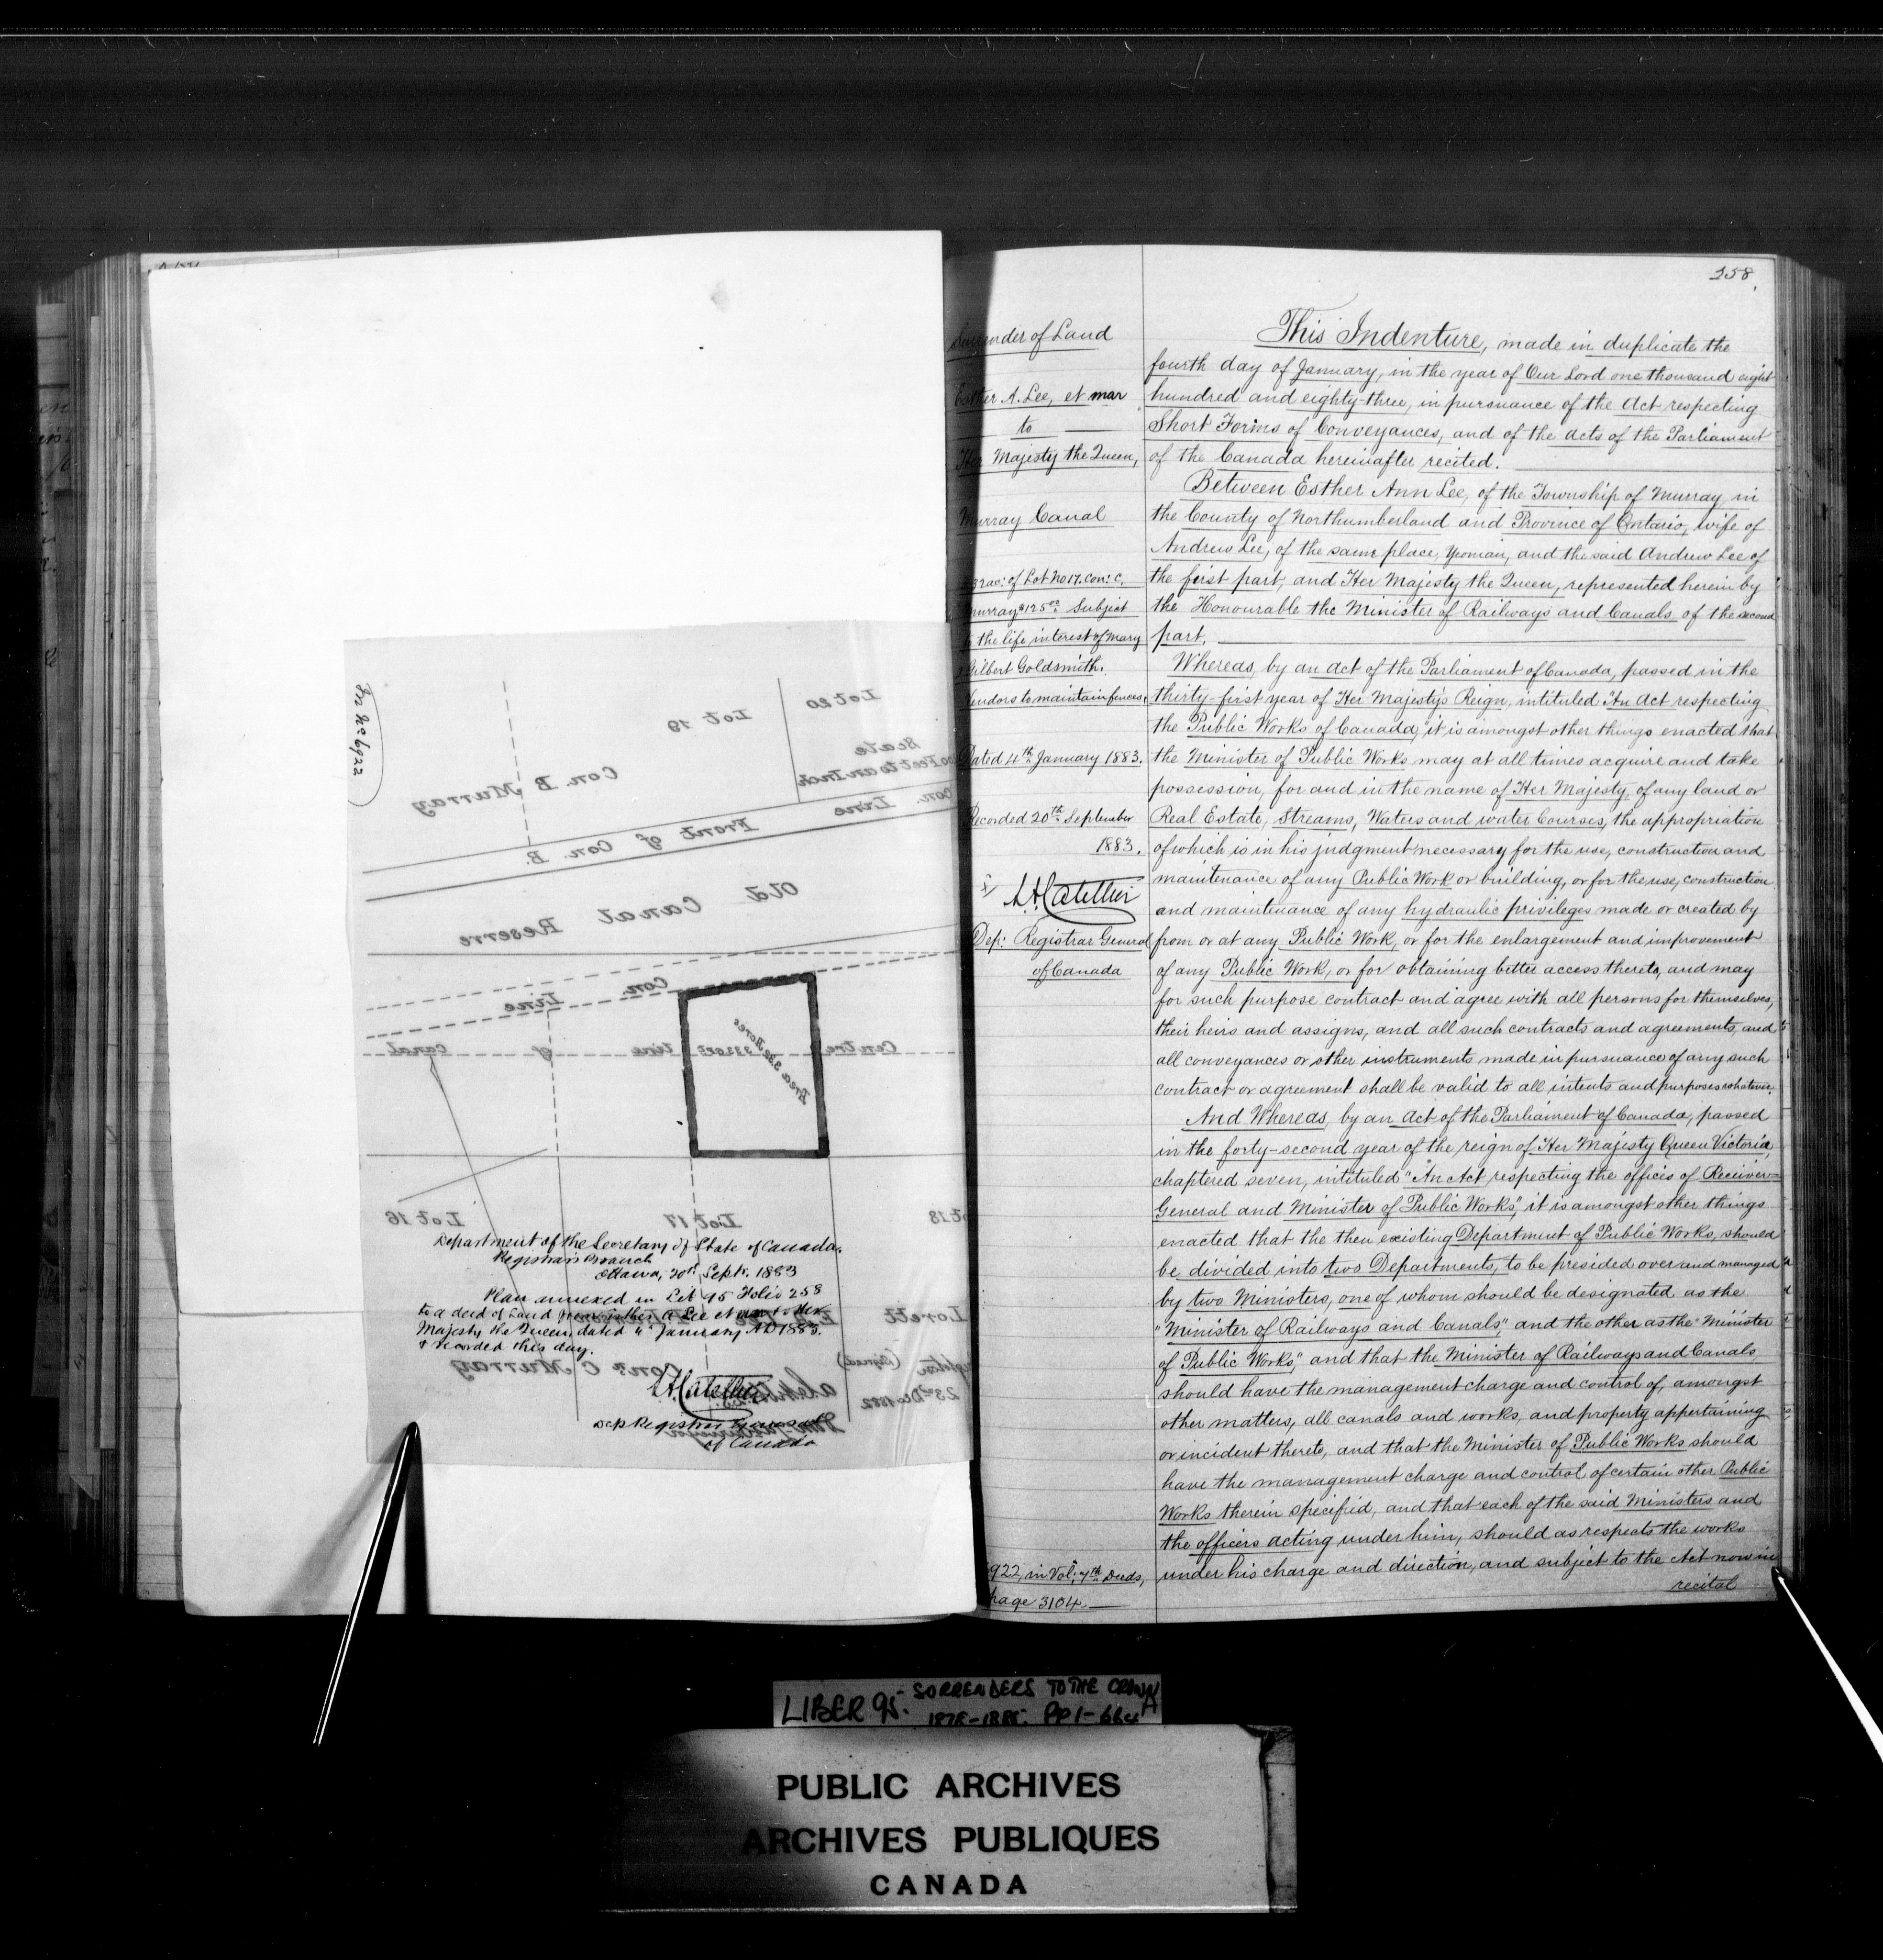 258.
Surrender of Land
Esther A. Lee, et mar
to
Her Majesty the Queen,
Murray Canal
32 ac: of Lot No 17. Con: C,
Murray $125.00 Subject
to the life interest of Mary
& Gilbert Goldsmith.
Vendors to maintain fences.
Dated 4th January 1883.
Recorded 20th September
1883.
Dep: Registrar General
of Canada
6922, in Vol: 7th Deeds,
page 3104.
This Indenture, made in duplicate the
fourth day of January, in the year of Our Lord one thousand eight
hundred and eighty-three, in pursuance of the Act respecting
Short Forms of Conveyances, and of the Acts of the Parliament
of the Canada hereinafter recited.
Between Esther Ann Lee, of the Township of Murray, in
the County of Northumberland and Province of Ontario, wife of
Andrew Lee, of the same place, Yeoman, and the said Andrew Lee of
the first part, and Her Majesty the Queen, represented herein by
the Honourable the Minister of Railways and Canals, of the second
part.
Whereas, by an Act of the Parliament of Canada, passed in the
thirty-first year of Her Majesty's Reign, intituled "An Act respecting
the Public Works of Canada, it is amongst other things enacted that
the Minister of Public Works may at all times acquire and take
possession, for and in the name of Her Majesty, of any land or
Real Estate, Streams, Waters and water Courses, the appropriation
of which is in his judgment necessary for the use, construction and
maintenance of any Public Work or building, or for the use, construction
and maintenance of any hydraulic privileges made or created by
from or at any Public Work, or for the enlargement and improvement
of any Public Work, or for obtaining better access thereto, and may
for such purpose contract and agree with all persons for themselves,
their heirs and assigns, and all such contracts and agreements, and
all conveyances or other instruments made in pursuance of any such
contract or agreement shall be valid to all intents and purposes whatever.
And Whereas, by an Act of the Parliament of Canada, passed
in the forty-second year of the reign of Her Majesty Queen Victoria,
chaptered seven, intituled "An Act respecting the offices of Receiver-
General and Minister of Public Works", it is amongst other things
enacted that the then existing Department of Public Works, should
be divided into two Departments, to be presided over and managed
by two Ministers, one of whom should be designated as the
"Minister of Railways and Canals", and the other as the "Minister
of Public Works," and that the Minister of Railways and Canals
should have the management charge and control of, amongst
other matters, all canals and works, and property appertaining
or incident thereto, and that the Minister of Public Works should
have the management charge and control of certain other Public
Works therein specified, and that each of the said Ministers and
the officers acting under him, should as respects the works
under his charge and direction, and subject to the Act now in
recital
Lot 20
Lot 19
Scale
Feet to an Inch
Con. B Murray
Con. Line
Front of Con. B.
Old Canal Reserve
Con. Line
Centre line of Canal
Lot 18
Lot 17
Lot 16
Con. C Murray
(Signed)
23rd Dec 1882
No 6922
Department of the Secretary of State of Canada.
Registrar's Branch
Ottawa, 20th Sept. 1883
Plan annexed in Lib 95 Folio 258
to a deed of Land from Esther A Lee et mar to Her
Majesty the Queen, dated 4th January AD 1883.
& recorded this day.
Dep Registrar General
of Canada
LIBER 95. SURRENDERS TO THE CROWN
1878-1885. PP 1-664
PUBLIC ARCHIVES
ARCHIVES PUBLIQUES
CANADA